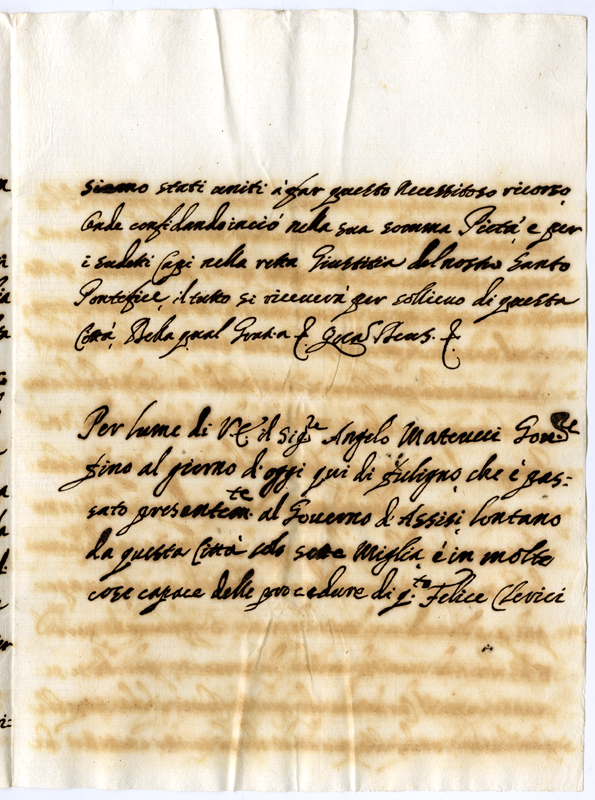 siamo stati uniti à far questo necessitoso ricorso,
Onde confidando in ciò nella sua somma Pietà e per
i sudeti Capi nella retta Giustitia del nostro Santo
Pontefice, il tutto si riceverà per sollievo di questa
Città, Della qual Gratia &. Quas Deus. &.
Per lume di V.E. il Sigre Angelo Matteucci Govre
fino al giorno d'oggi qui di fuligno che è pas=
sato presentemte. al Governo di Assisi lontano
da questa Città solo sette Miglia, è in molte
cose capace delle procedure di q.to Felice Clerici